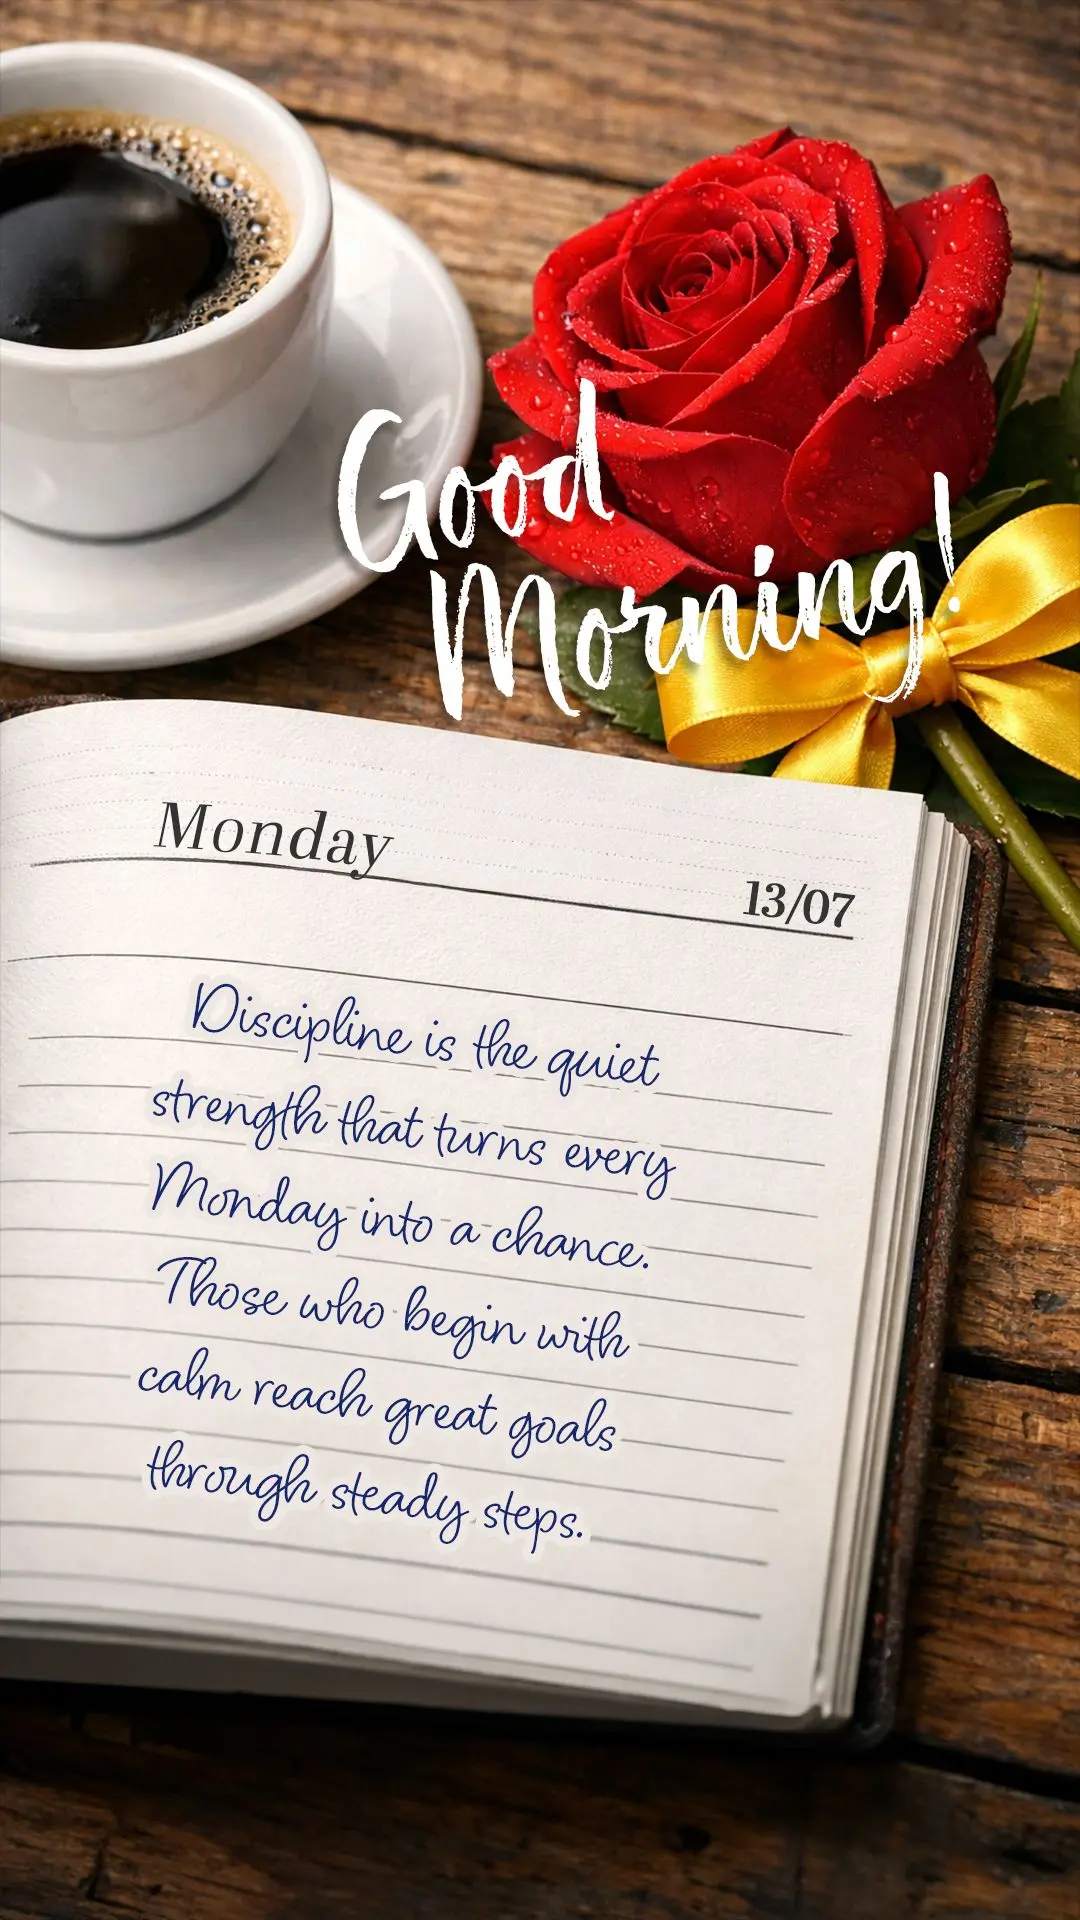 Good
Morning!
Monday
13/07
Discipline is the quiet
strength that turns every
Monday into a chance.
Those who begin with
calm reach great goals
through steady steps.